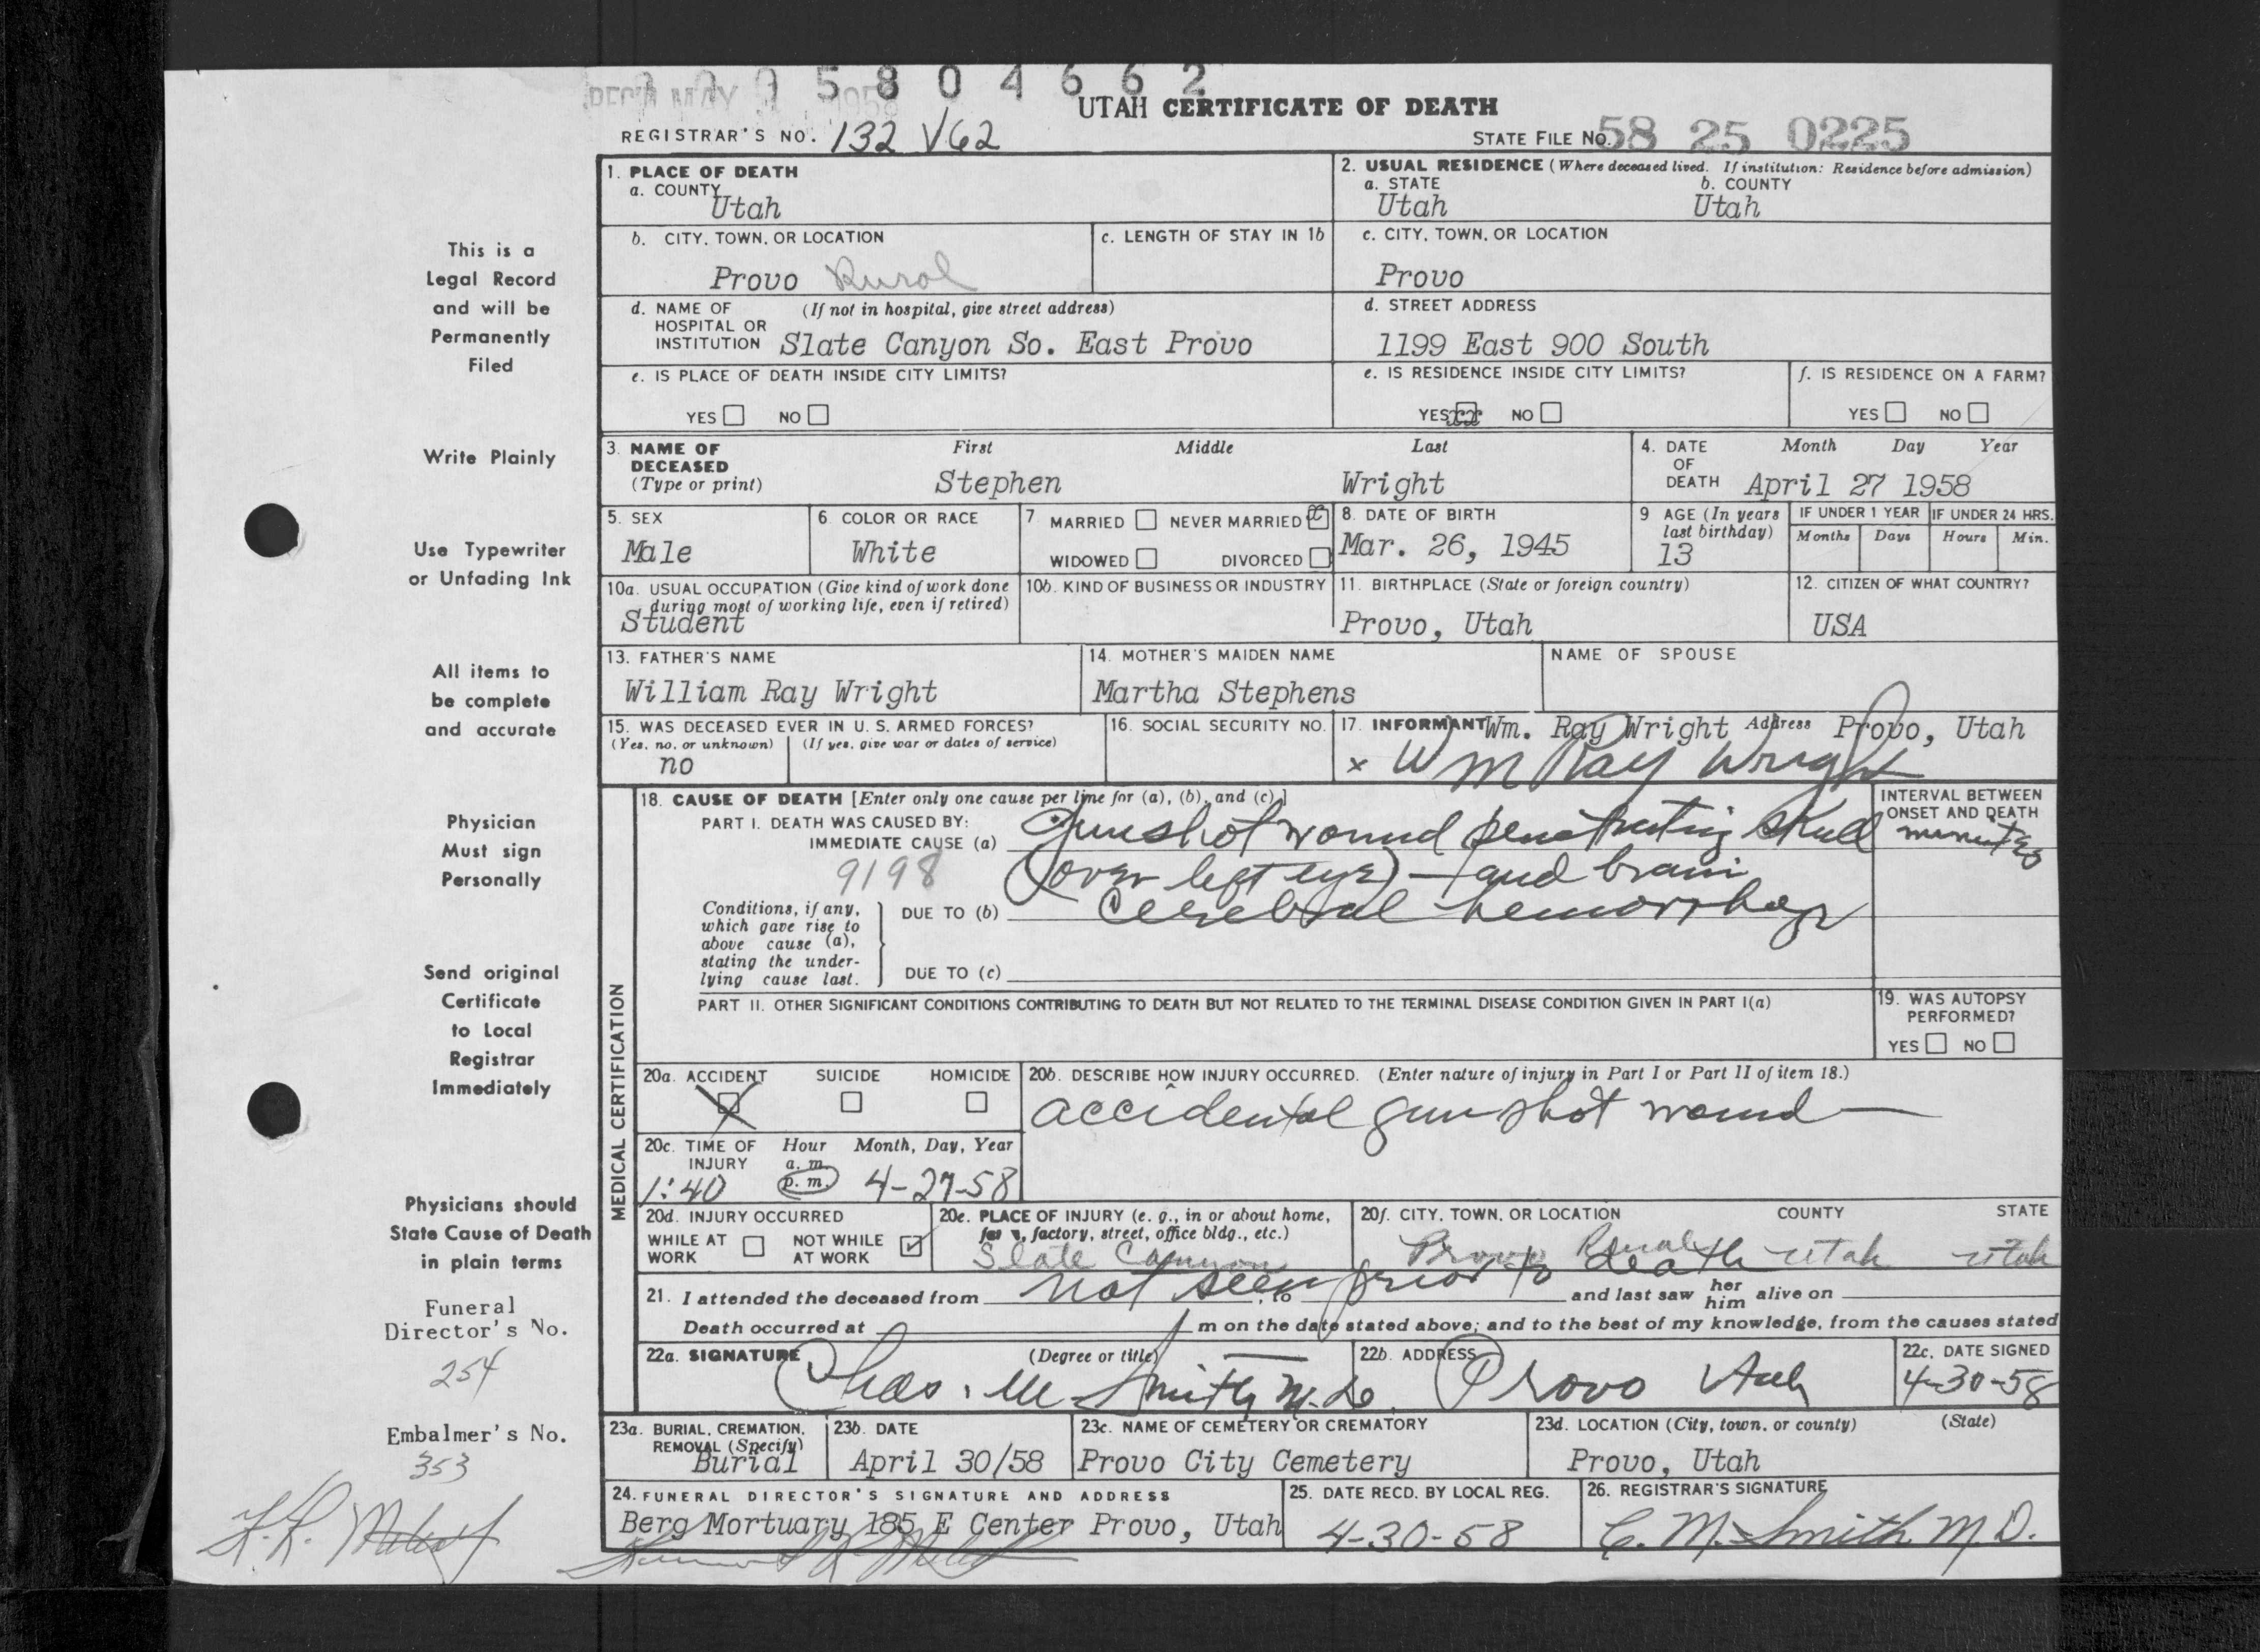 5 8 0 4 6 6 2
REC'D MAY 1958
UTAH CERTIFICATE OF DEATH
REGISTRAR'S NO. 132 V62
STATE FILE NO. 58 25 0225
1. PLACE OF DEATH
a. COUNTY
Utah
2. USUAL RESIDENCE (Where deceased lived. If institution: Residence before admission)
a. STATE b. COUNTY
Utah Utah
b. CITY, TOWN, OR LOCATION
Provo Rural
c. LENGTH OF STAY IN 1b
c. CITY, TOWN, OR LOCATION
Provo
d. NAME OF (If not in hospital, give street address)
HOSPITAL OR
INSTITUTION Slate Canyon So. East Provo
d. STREET ADDRESS
1199 East 900 South
e. IS PLACE OF DEATH INSIDE CITY LIMITS?
YES NO
e. IS RESIDENCE INSIDE CITY LIMITS?
YES xx NO
f. IS RESIDENCE ON A FARM?
YES NO
3. NAME OF First Middle Last
DECEASED
(Type or print) Stephen Wright
4. DATE Month Day Year
OF
DEATH April 27 1958
5. SEX
Male
6. COLOR OR RACE
White
7. MARRIED NEVER MARRIED x
WIDOWED DIVORCED
8. DATE OF BIRTH
Mar. 26, 1945
9 AGE (In years
last birthday)
13
IF UNDER 1 YEAR
Months Days
IF UNDER 24 HRS.
Hours Min.
10a. USUAL OCCUPATION (Give kind of work done
during most of working life, even if retired)
Student
10b. KIND OF BUSINESS OR INDUSTRY
11. BIRTHPLACE (State or foreign country)
Provo, Utah
12. CITIZEN OF WHAT COUNTRY?
USA
13. FATHER'S NAME
William Ray Wright
14. MOTHER'S MAIDEN NAME
Martha Stephens
NAME OF SPOUSE
15. WAS DECEASED EVER IN U. S. ARMED FORCES?
(Yes, no, or unknown) (If yes, give war or dates of service)
no
16. SOCIAL SECURITY NO.
17. INFORMANT Wm. Ray Wright Address Provo, Utah
x Wm Ray Wright
MEDICAL CERTIFICATION
18. CAUSE OF DEATH [Enter only one cause per line for (a), (b), and (c).]
PART I. DEATH WAS CAUSED BY:
IMMEDIATE CAUSE (a) Gunshot wound penetrating skull
9198 (over left eye) - and brain
INTERVAL BETWEEN
ONSET AND DEATH
minutes
Conditions, if any,
which gave rise to
above cause (a),
stating the under-
lying cause last.
DUE TO (b) Cerebral hemorrhage
DUE TO (c)
PART II. OTHER SIGNIFICANT CONDITIONS CONTRIBUTING TO DEATH BUT NOT RELATED TO THE TERMINAL DISEASE CONDITION GIVEN IN PART I(a)
19. WAS AUTOPSY
PERFORMED?
YES NO
20a. ACCIDENT SUICIDE HOMICIDE
20b. DESCRIBE HOW INJURY OCCURRED. (Enter nature of injury in Part I or Part II of item 18.)
accidental gun shot wound
20c. TIME OF Hour Month, Day, Year
INJURY a. m.
1:40 p. m. 4-27-58
20d. INJURY OCCURRED
WHILE AT WORK
NOT WHILE AT WORK
20e. PLACE OF INJURY (e. g., in or about home,
farm, factory, street, office bldg., etc.)
Slate Canyon
20f. CITY, TOWN, OR LOCATION COUNTY STATE
Provo Rural Utah Utah
21. I attended the deceased from not seen, to prior to death and last saw her him alive on
Death occurred at m on the date stated above; and to the best of my knowledge, from the causes stated
22a. SIGNATURE (Degree or title)
Chas. M Smith M.D.
22b. ADDRESS
Provo Utah
22c. DATE SIGNED
4-30-58
23a. BURIAL, CREMATION,
REMOVAL (Specify)
Burial
23b. DATE
April 30/58
23c. NAME OF CEMETERY OR CREMATORY
Provo City Cemetery
23d. LOCATION (City, town, or county) (State)
Provo, Utah
24. FUNERAL DIRECTOR'S SIGNATURE AND ADDRESS
Berg Mortuary 185 E Center Provo, Utah
25. DATE RECD. BY LOCAL REG.
4-30-58
26. REGISTRAR'S SIGNATURE
C. M. Smith M.D.
This is a
Legal Record
and will be
Permanently
Filed
Write Plainly
Use Typewriter
or Unfading Ink
All items to
be complete
and accurate
Physician
Must sign
Personally
Send original
Certificate
to Local
Registrar
Immediately
Physicians should
State Cause of Death
in plain terms
Funeral
Director's No.
254
Embalmer's No.
353